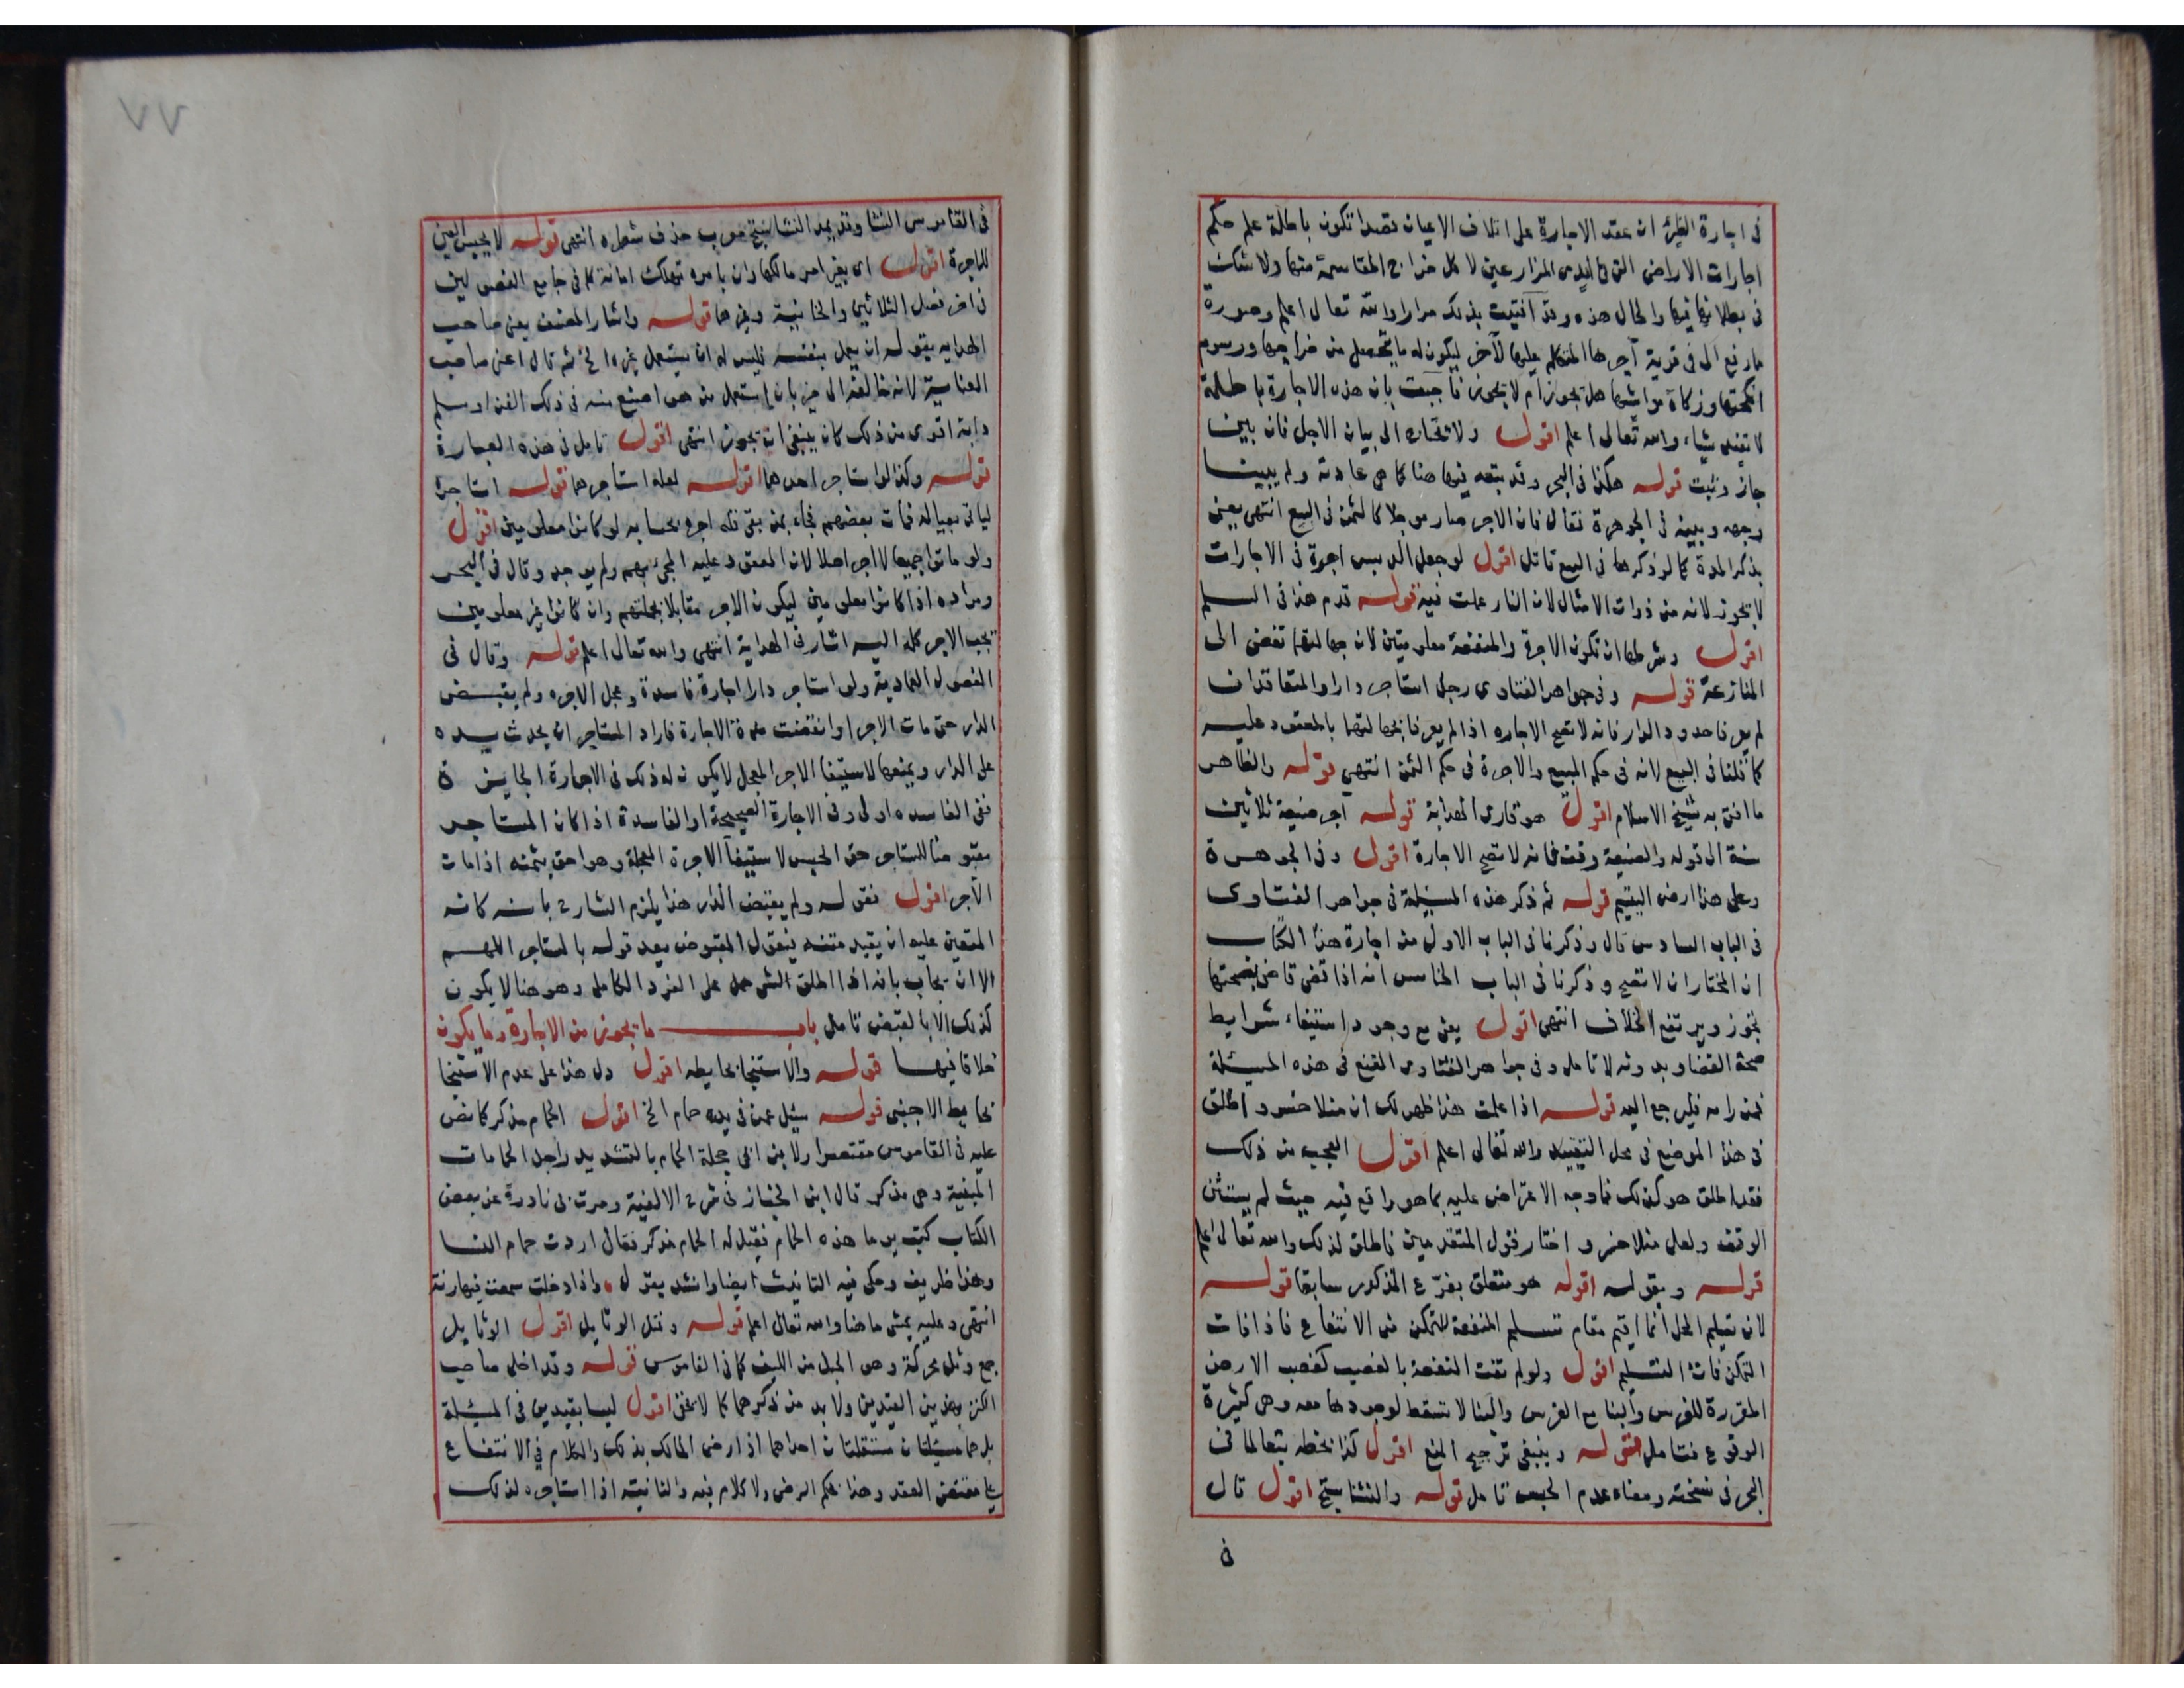 في اجارة الظئر ان عقد الاجارة على اتلاف الاعيان قصدا تكون باطلة علم حكم
اجارات الاراضي التي في ايدي المزارعين لاكل خراج المقاسمة منها ولا شك
في بطلانها فيها والحال هذه وقد افتيت بذلك مرارا والله تعالى اعلم وصورة
ما رفع الى في قرية آجرها المتكلم عليها لآخر ليكون له ما يتحصل من خراجها ورسوم
انكحتها وزكاة مواشيها هل تجوز ام لا يجوز فاجبت بان هذه الاجارة باطلة
لا تفيد شياء والله تعالى اعلم اقول ولا تحتاج الى بيان الاجل فان بين
جاز وثبت قوله هكذا في البحر وقد تبعه فيها هنا كما هي عادته ولم يبينا
وجهه وبينه في الجوهرة فقال فان الاجر صار موجلا كالثمن في البيع انتهى يعني
بذكر المدة كما لو ذكرها في البيع تامل اقول لو جعل الدبس اجرة في الاجارات
لا يجوز لانه من ذوات الامثال لان النار عملت فيه قوله قدم هذا في السلم
اقول وشرطها ان تكون الاجرة والمنفعة معلومتين لان جهالتهما تفضي الى
المنازعة قوله وفي جواهر الفتاوى رجل استاجر دارا والمتعاقدان
لم يعرفا حدود الدار فانه لا تصح الاجاره اذا لم يعرفا لجهالتهما بالمعقود عليه
كما قلنا في البيع لانه في حكم المبيع والاجرة في حكم الثمن انتهى قوله والظاهر
ما افتى به شيخ الاسلام اقول هو قارى الهداية قوله آجر ضيعة ثلاثين
سنة الى قوله والضيعة وقف فانه لا تصح الاجارة اقول وفي الجوهرة
وعلى هذا ارض اليتيم قوله ثم ذكر هذه المسئلة في جواهر الفتاوى
في الباب السادس قال وذكرنا في الباب الاول من اجارة هذا الكتاب
ان المختار ان لا تصح وذكرنا في الباب الخامس انه اذا قضى قاض بصحتها
تجوز ويرتفع الخلاف انتهى اقول يعني مع وجود استيفاء شرايط
صحة القضا وبدونه لا تامل وفي جواهر الفتاوى القنع في هذه المسئلة
فمن رامه فليرجع اليه قوله اذا علمت هذا ظهر لك ان منلا خسرو اطلق
في هذا الموضع في محل التقييد والله تعالى اعلم اقول العجب من ذلك
فقد اطلق هو كذلك فما وجه الاعتراض عليه بما هو واقع فيه حيث لم يستثن
الوقف ولعل منلا خسرو اختار قول المتقدمين فاطلق لذلك والله تعالى اعلم
قوله وبقوله اقوله هو متعلق بفرّع المذكور سابقا قوله
لان تسليم المحل انما اقيم مقام تسليم المنفعة للتمكن من الانتفاع فاذا فات
التمكن فات التسليم اقول ولو لم تفت المنفعة بالغصب كغصب الارض
المقررة للغرس والبنا مع الغرس والبنا لا تسقط لوجودها معه وهي كثيرة
الوقوع فتامل قوله وينبغي ترجيح المنع اقول كذا بخطه تبعا لما في
البحر في نسخته ومعناه عدم الحبس تامل قوله والنشاستج اقول قال
في
٧٧
في القاموس النشا وقد يمد النشاستج معرب حذف شطره انتهى قوله لا يحبس العين
للاجرة اقول اى بغير امر مالكها وان بامره تهلك امانة كما في جامع الفصولين
في اخر فصل الثلاثين والخانية وغيرها قوله واشار المصنف يعني صاحب
الهداية بقوله ان يعمل بنفسه فليس له ان يستعمل غيره الخ ثم قال اعني صاحب
العناية لانه خالفه الى خير بان استعمل من هو اصنع منه في ذلك الفن او سلم
دابة اقوى من ذلك كان ينبغي ان تجوز انتهى اقول تامل في هذه العبارة
قوله وكذا لو استاجر احدهما اقوله لعله استاجرهما قوله استاجره
لياتي بعياله فمات بعضهم فجاء بمن بقي فله اجره بحسابه لو كانوا معلومين اقول
ولو ماتوا جميعا لا اجر اصلا لان المعقود عليه المجئ بهم ولم يوجد وقال في البحر
ومراده اذا كانوا معلومين ليكون الاجر مقابلا بجملتهم وان كانوا غير معلومين
يجب الاجر كله اليه اشار في الهداية انتهى والله تعالى اعلم قوله وقال في
الفصول العمادية ولو استاجر دارا اجارة فاسدة وعجل الاجره ولم يقبض
الدار حتى مات الاجر او انقضت مدة الاجارة فاراد المستاجر ان يحدث يده
على الدار ويمنعها لاستيفا الاجر المعجل لا يكون له ذلك في الاجارة الجايزة
ففي الفاسده اولى وفي الاجارة الصحيحة او الفاسدة اذا كان المستاجر
مقبوضا للمستاجر حق الحبس لاستيفا الاجرة المعجلة وهو احق بثمنه اذا مات
الآجر اقول فقوله ولم يقبض الدار هذا يلزم الشارح بانه كانه
المتعين عليه ان يقيد متنه فيقول المقبوض بعد قوله بالمستاجر اللهم
الا ان يجاب بانه اذا اطلق الشي حمل على الفرد الكامل وهو هنا لا يكون
كذلك الا بالقبض تامل باب ما يجوز من الاجارة وما يكون
خلافا فيها قوله والاستنجا بحايطه اقول دل هذا على عدم الاستنجا
بحايط الاجنبى قوله سئل عمن في يده حمام الخ اقول الحمام مذكر كما نص
عليه في القاموس مقتصرا ولابن اخي جحلة الحمام بالتشديد واحد الحمامات
المبنية وهى مذكر قال ابن الخباز في شرح الالفية ومرت بى نادرة عن بعض
الكتاب كتب يوما هذه الحمام فقيل له الحمام مذكر فقال اردت حمام النسا
وهذا ظريف وحكى فيه التانيث ايضا وانشد يقول واذا دخلت سمعت فيها رنة
انتهى وعليه يمشى ما هنا والله تعالى اعلم قوله وفتل الوثايل اقول الوثايل
جمع وثل محركة وهو الحبل من الليف كما في القاموس قوله وقد اخل صاحب
الكنز بهذين القيدين ولا بد من ذكرهما كما لا يخفى اقول ليسا بقيدين في المسئلة
بل هما مسئلتان مستقلتان احداهما اذا رضى المالك بذلك والكلام في الانتفاع
على مقتضى العقد وهذا بحكم الرضى ولا كلام فيه والثانية اذا استاجره لذلك